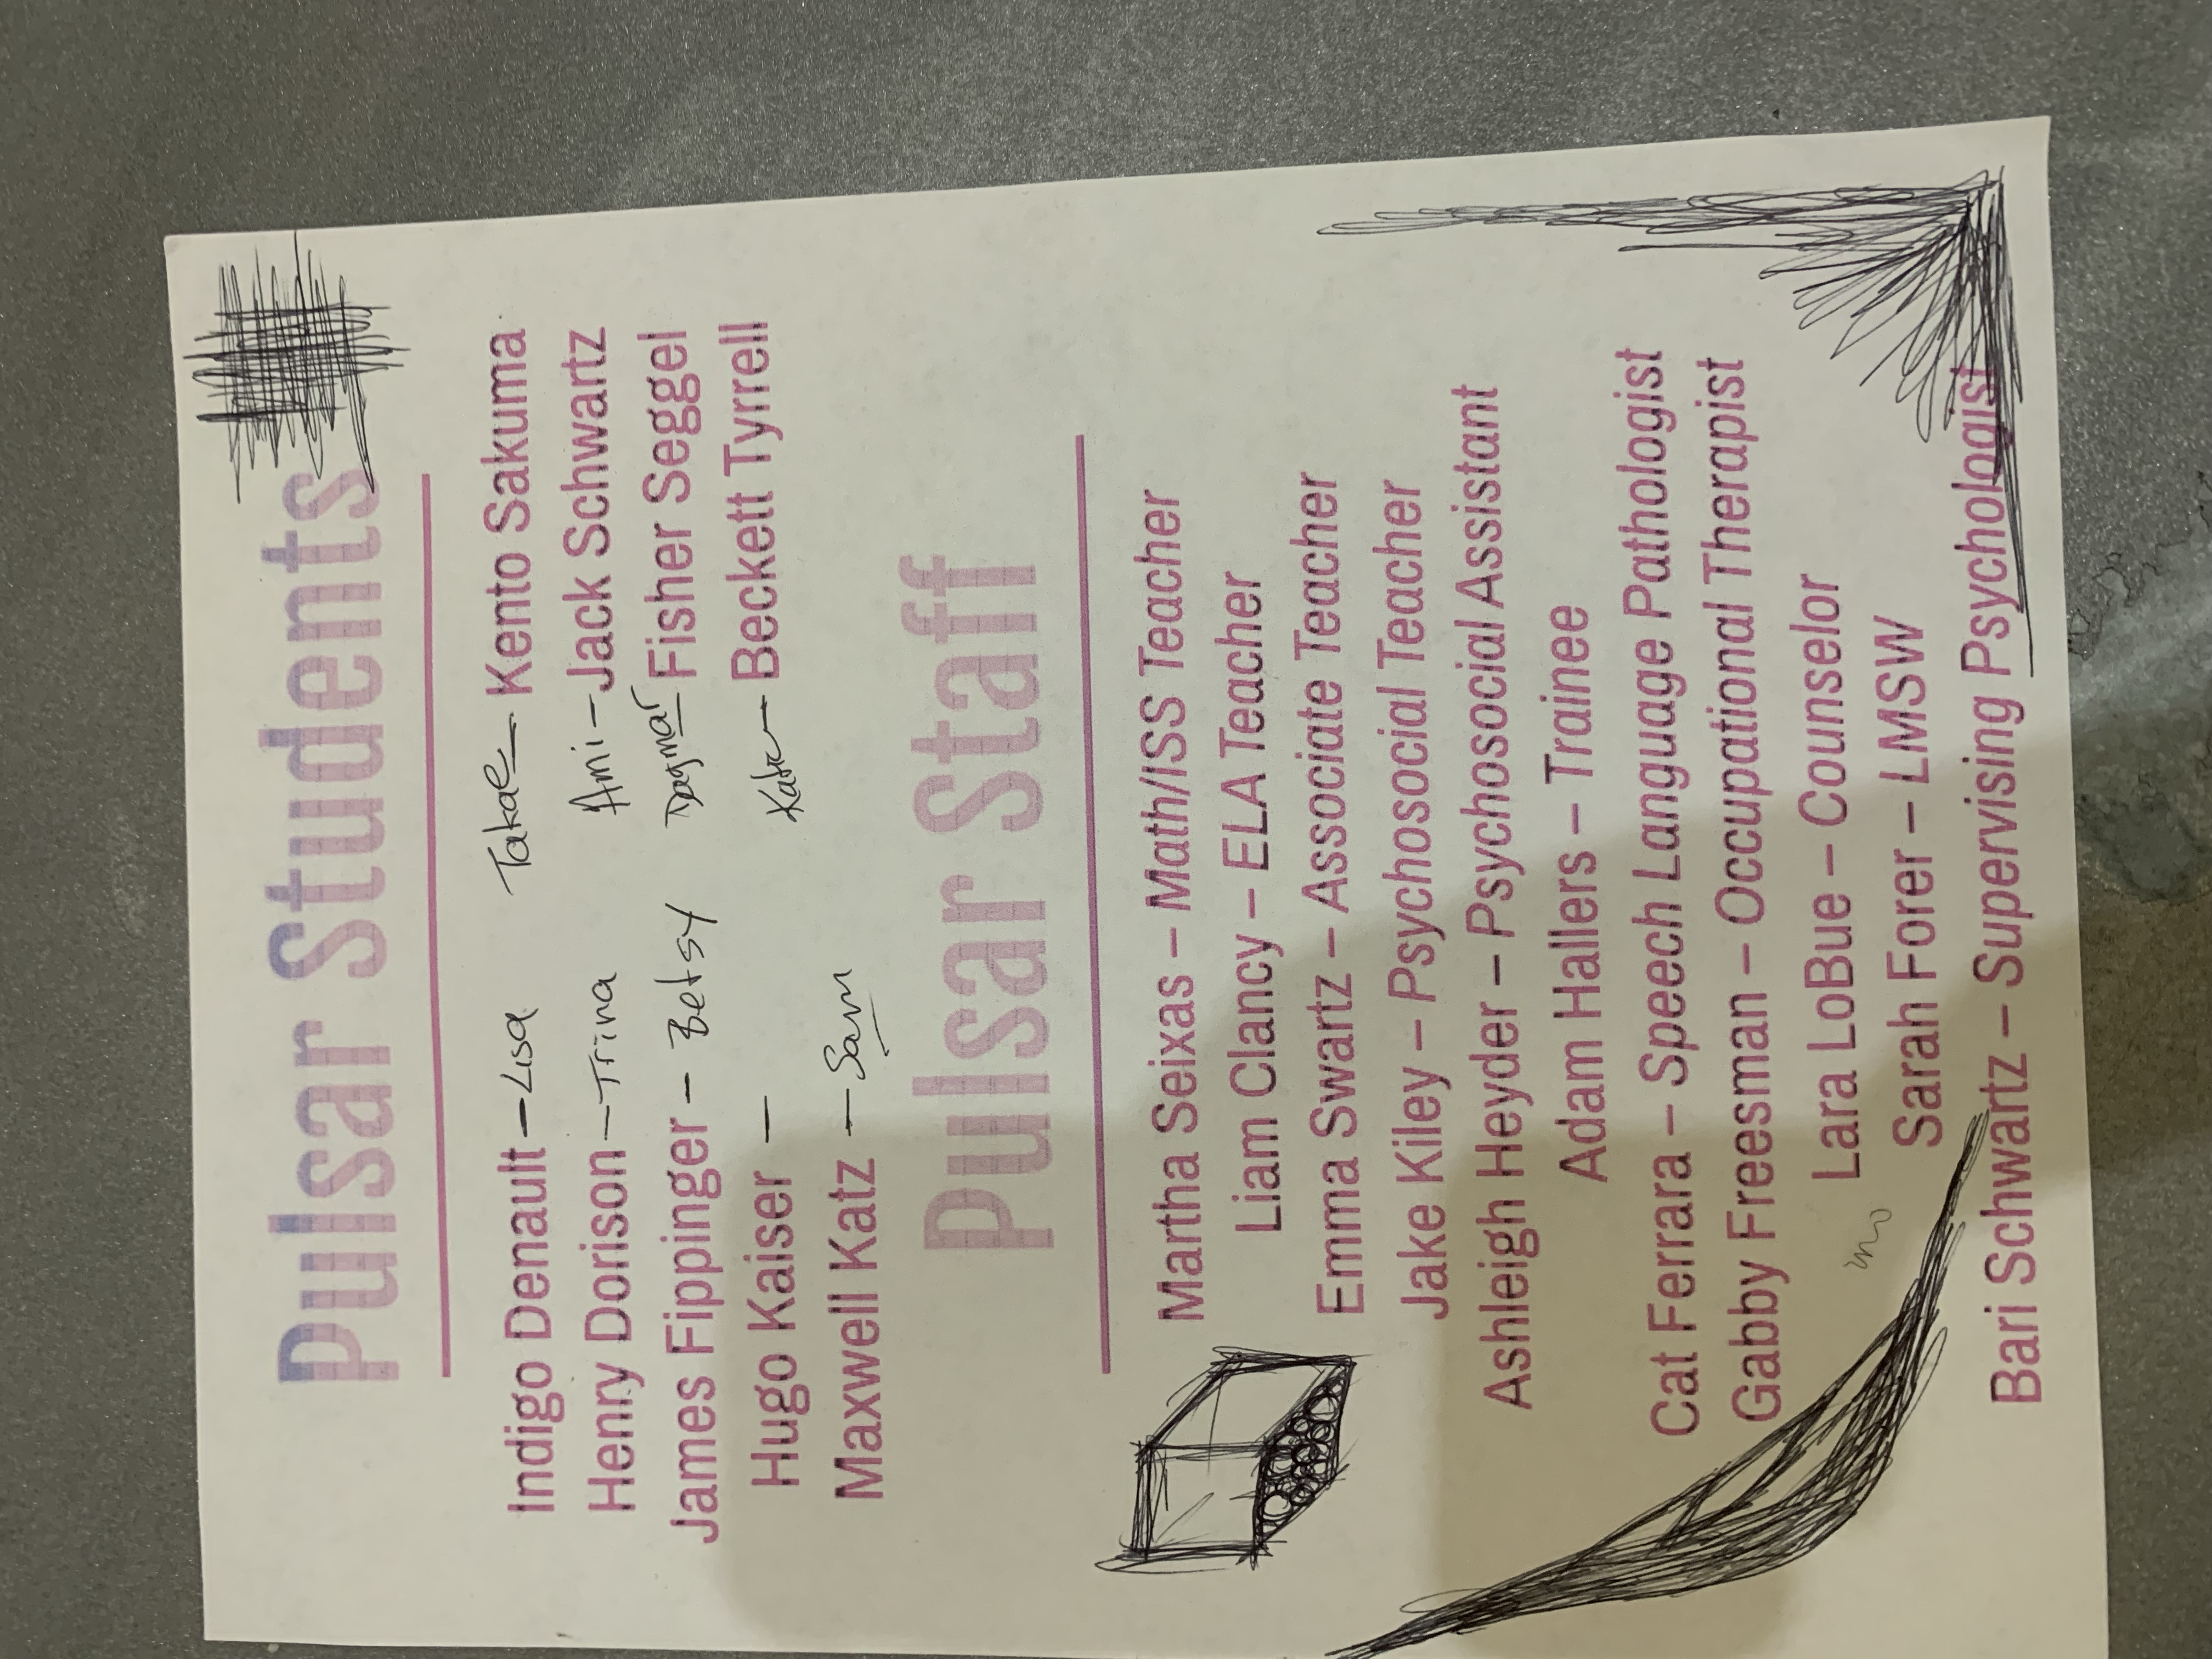 Pulsar Students
Indigo Denault – Lisa
Henry Dorison – Trina
James Fippinger – Betsy
Hugo Kaiser –
Maxwell Katz – Sam
Takae – Kento Sakuma
Ami – Jack Schwartz
Dagmar Fisher Seggel
Beckett Tyrrell
Pulsar Staff
Martha Seixas – Math/ISS Teacher
Liam Clancy – ELA Teacher
Emma Swartz – Associate Teacher
Jake Kiley – Psychosocial Teacher
Ashleigh Heyder – Psychosocial Assistant
Adam Hallers – Trainee
Cat Ferrara – Speech Language Pathologist
Gabby Freesman – Occupational Therapist
Lara LoBue – Counselor
Sarah Forer – LMSW
Bari Schwartz – Supervising Psychologist